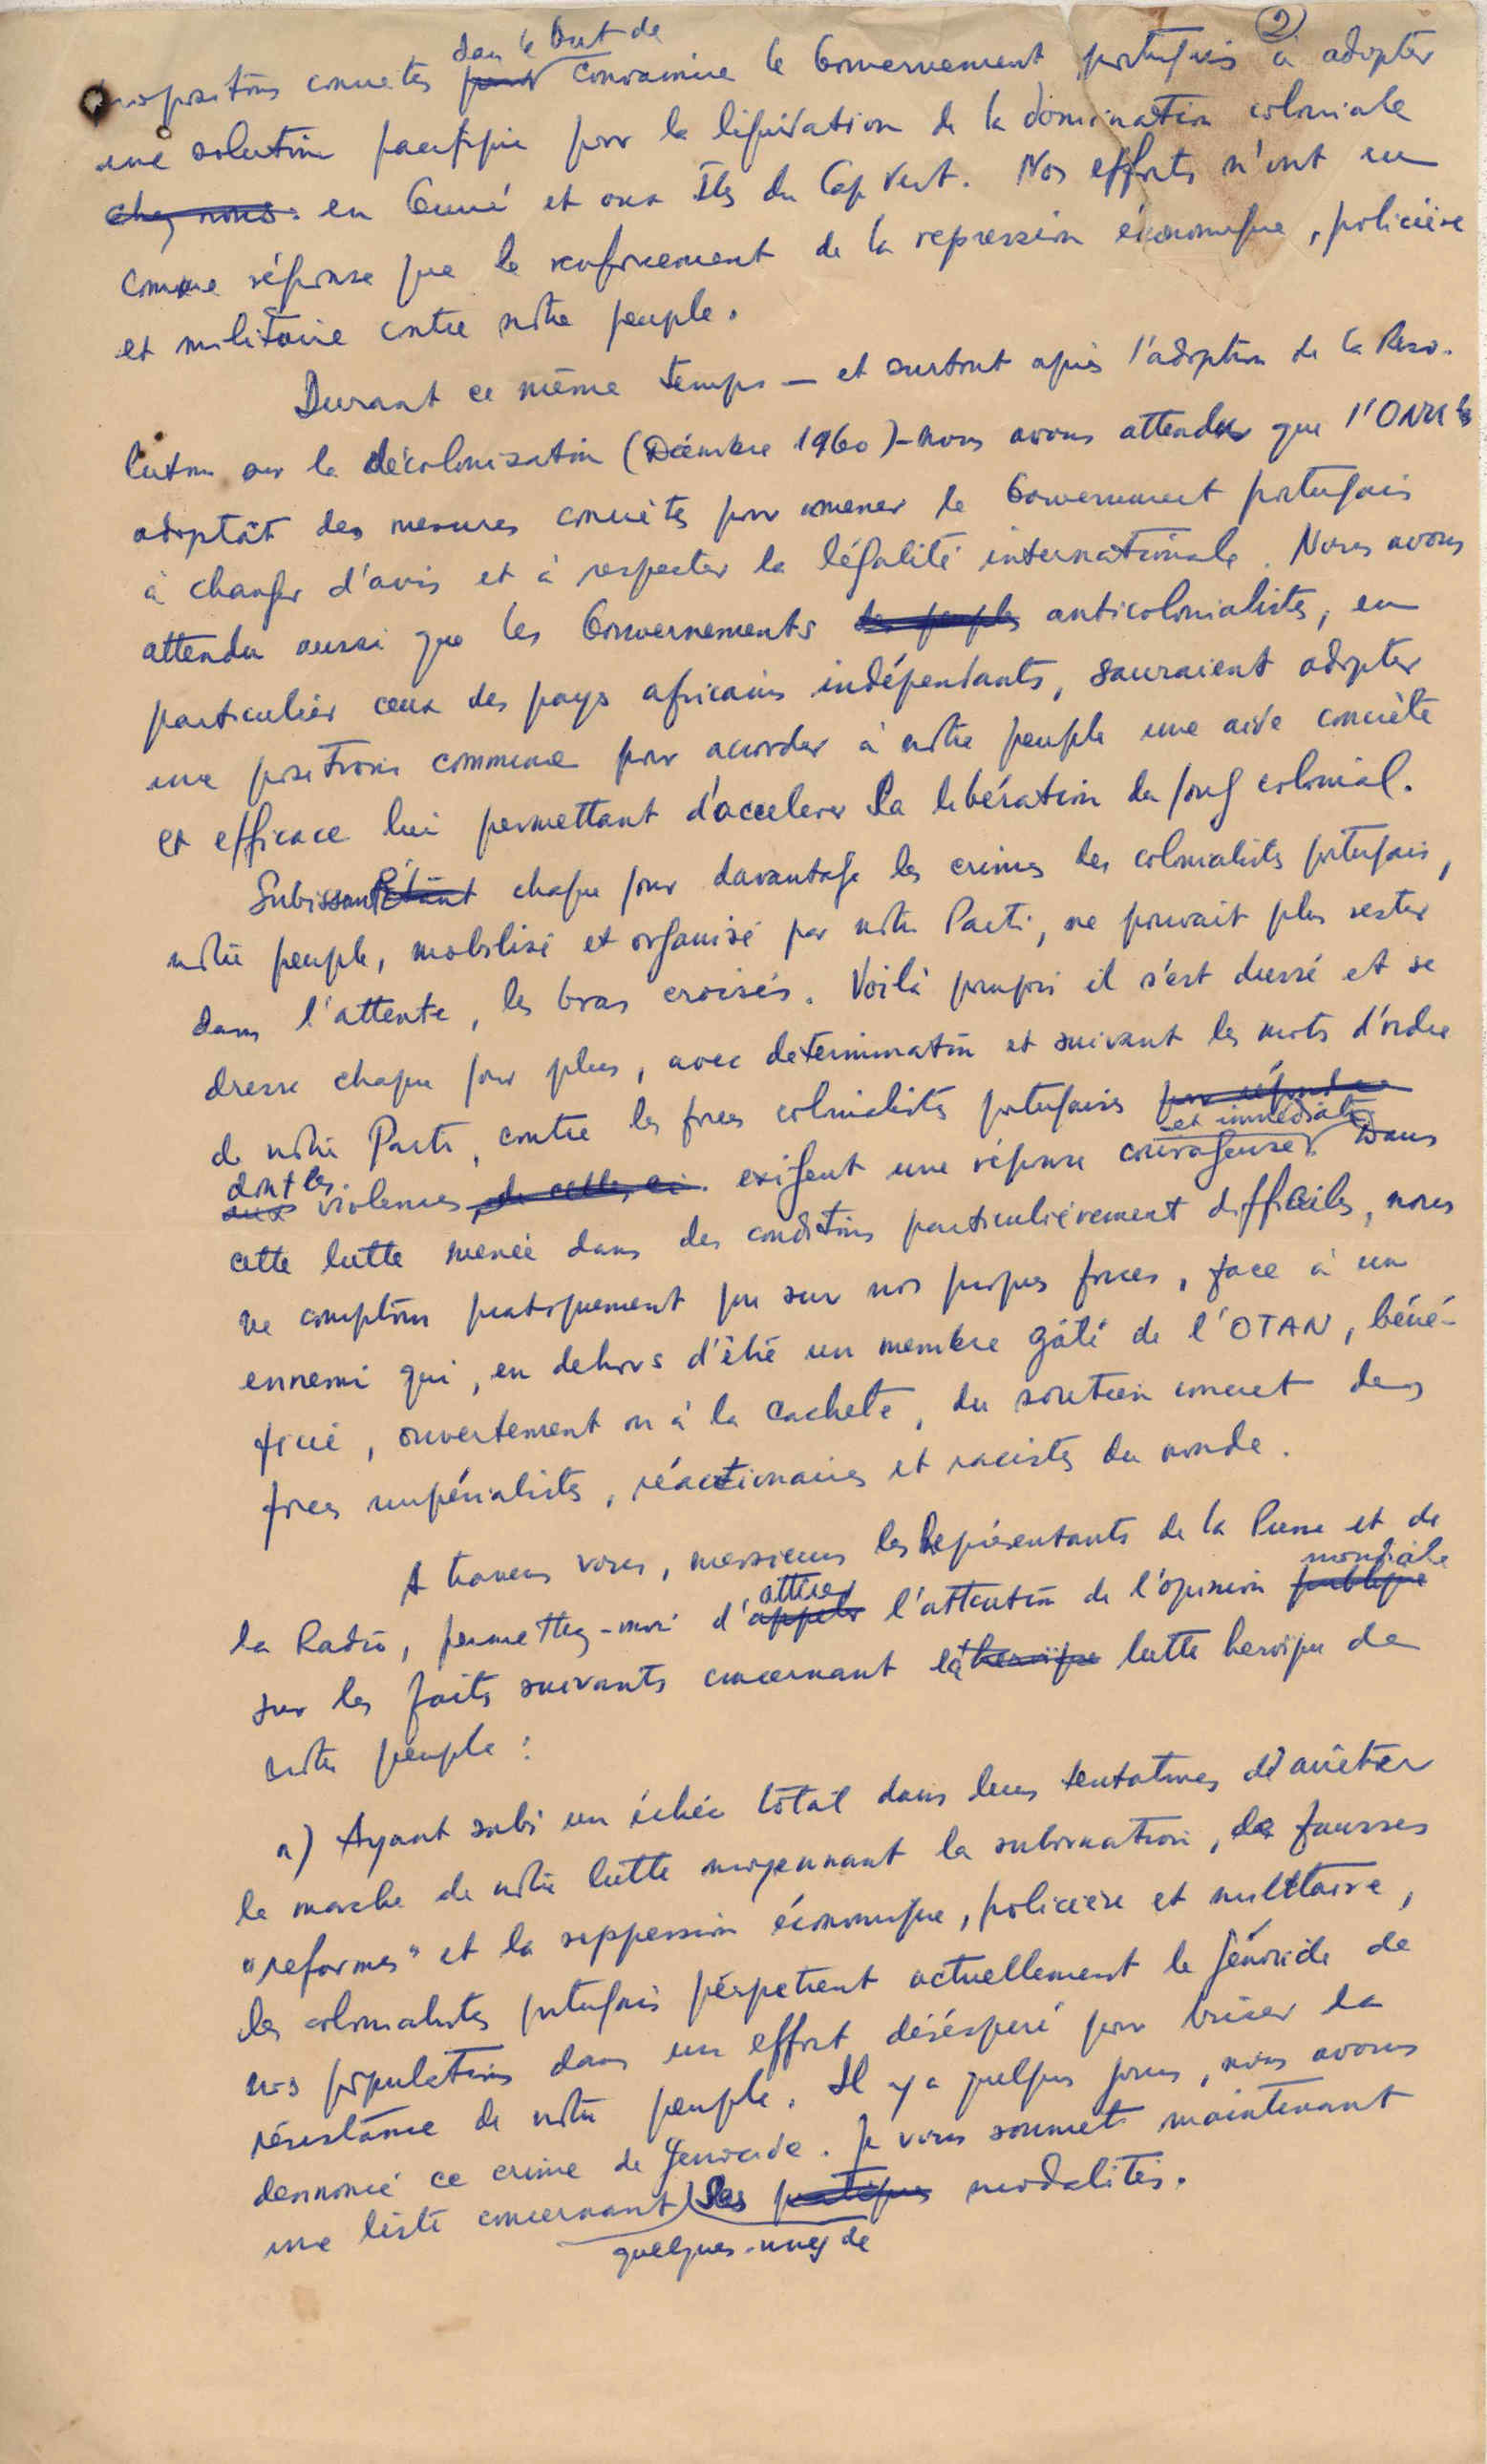 ②
dans le but de
propositions concrètes pour convaincre le Gouvernement portugais à adopter
une solution pacifique pour la liquidation de la domination coloniale
chez nous. en Guiné et aux Iles du Cap Vert. Nos efforts n'ont eu
comme réponse que le renforcement de la repression économique, policière
et militaire contre notre peuple.
Durant ce même temps — et surtout après l'adoption de la Reso-
lution sur la décolonisation (Décembre 1960) - nous avons attendu que l'ONU
adoptât des mesures concrètes pour amener le Gouvernement portugais
à changer d'avis et à respecter la légalité internationale. Nous avons
attendu aussi que les Gouvernements des peuples anticolonialistes, en
particulier ceux des pays africains indépendants, sauraient adopter
une position commune pour accorder à notre peuple une aide concrète
et efficace lui permettant d'accelerer sa libération du joug colonial.
Subissant Etant chaque jour davantage les crimes des colonialistes portugais,
notre peuple, mobilisé et organisé par notre Parti, ne pouvait plus rester
dans l'attente, les bras croisés. Voilà pourquoi il s'est dressé et se
dresse chaque jour plus, avec determination et suivant les mots d'ordre
de notre Parti, contre les forces colonialistes portugaises pour répondre
et immédiate
dont les
aux violences de celles-ci. exigent une réponse courageuse. Dans
cette lutte menée dans des conditions particulièrement difficiles, nous
ne comptons pratiquement que sur nos propres forces, face à un
ennemi qui, en dehors d'être un membre gâté de l'OTAN, béné-
ficie, ouvertement ou à la cachete, du soutien concret des
forces impérialistes, réactionaires et racistes du monde.
A travers vous, messieurs les Représentants de la Presse et de
attirer mondiale
la Radio, permettez-moi d'appeler l'attention de l'opinion publique
sur les faits suivants concernant la heroïque lutte heroïque de
notre peuple :
a) Ayant subi un échec total dans leurs tentatives d'arrêter
la marche de notre lutte moyennant la subornation, de fausses
"reformes" et la reppression économique, policière et militaire,
les colonialistes portugais pérpetrent actuellement le génocide de
nos populations dans un effort déséspéré pour briser la
résistance de notre peuple. Il y a quelques jours, nous avons
dennoncé ce crime de genocide. Je vous soumet maintenant
une liste concernant ses pratiques modalités.
quelques-unes de